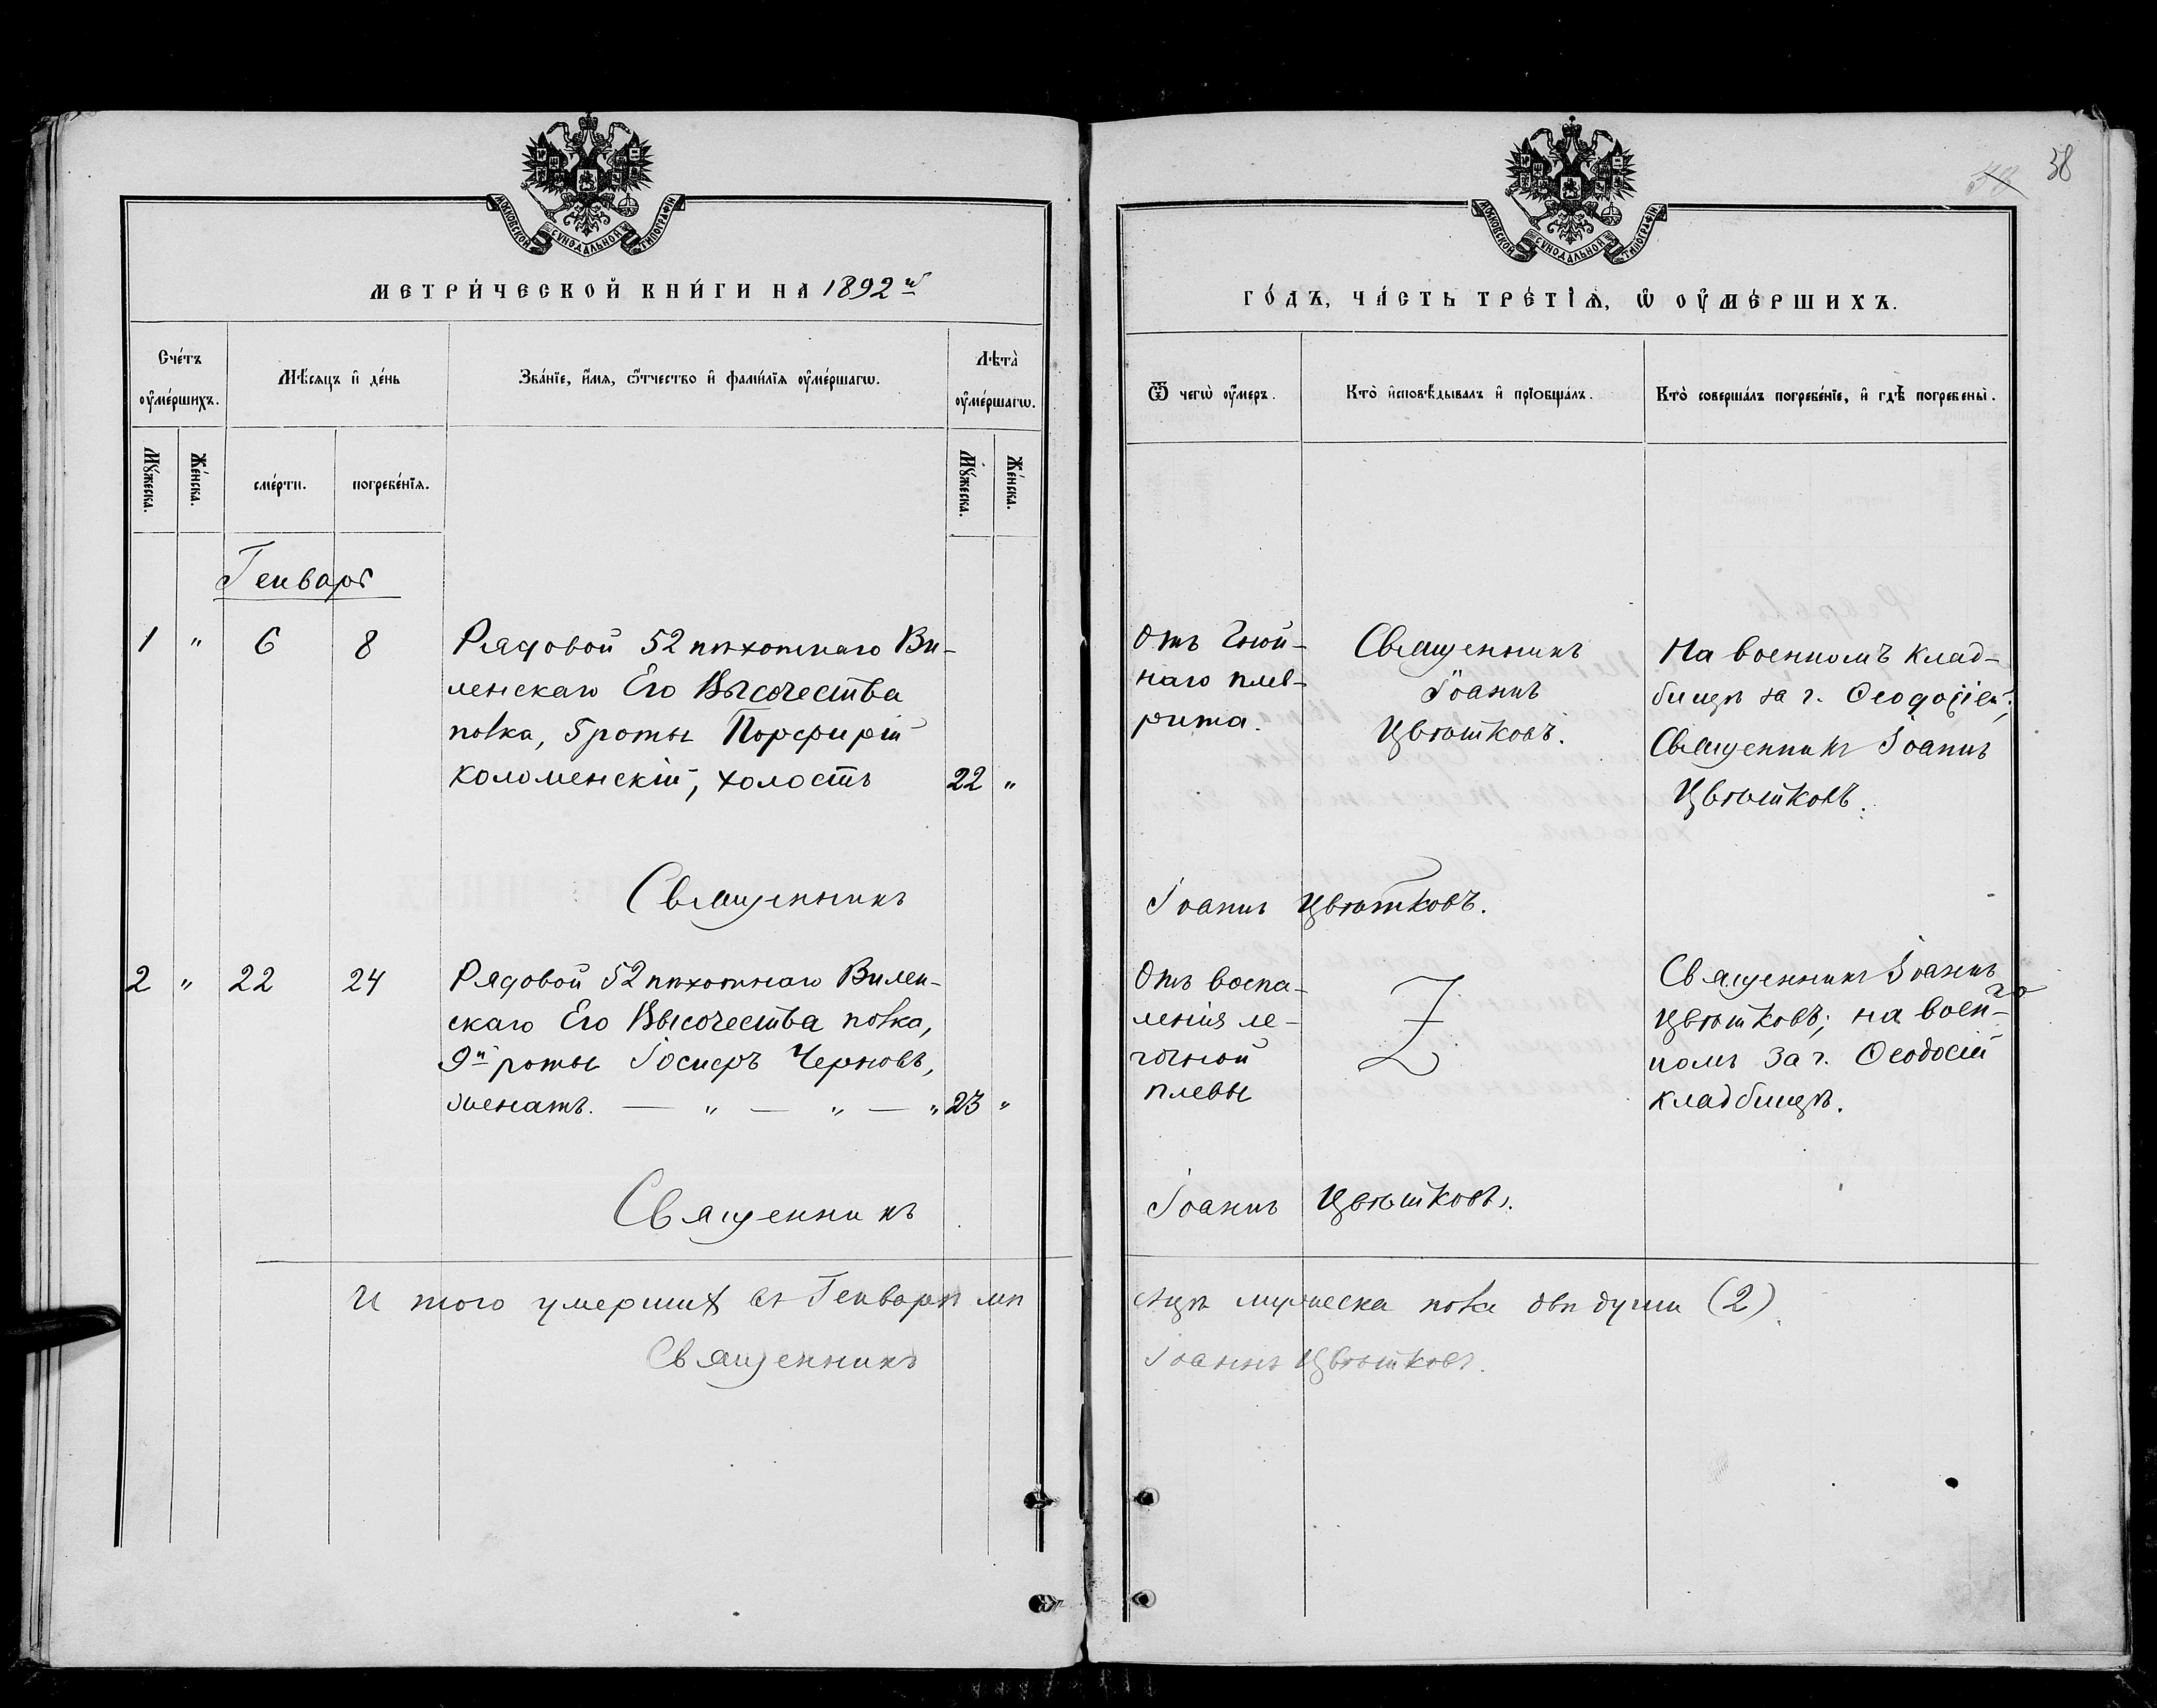 МОСКОВСКОЙ СѴНОДАЛЬНОЙ ТИПОГРАФІИ
МЕТРИ́ЧЕСКОЙ КНИ́ГИ НА 1892й
Сче́тъ оу҆ме́ршихъ.
Мѣ́сяцъ и҆ де́нь
Зва́нїе, и҆́мя, ѻ҆́тчество и҆ фами́лїя оу҆ме́ршагѡ.
Лѣта̀ оу҆ме́ршагѡ.
Мꙋ́жеска.
Же́нска.
сме́рти.
погребе́нїя.
Мꙋ́жеска.
Же́нска.
Генварь
1 " 6 8
Рядовой 52 пѣхотнаго Ви-
ленскаго Его Высочества
полка, 5 роты Порфирій
Коломенскій, холостъ 22 "
Священникъ
2 " 22 24
Рядовой 52 пѣхотнаго Вилен-
скаго Его Высочества полка,
9й роты Іосифъ Черновъ,
женатъ. — " — " — " 23 "
Священникъ
И того умершихъ въ Генварѣ мѣ
Священникъ
38
МОСКОВСКОЙ СѴНОДАЛЬНОЙ ТИПОГРАФІИ
ГО́ДЪ, ЧА́СТЬ ТРЕ́ТІѦ, Ѡ ОУ҆МЕ́РШИХЪ.
Ѿ чегѡ̀ оу҆́меръ.
Кто̀ и҆сповѣ́дывалъ и҆ прїѡбща́лъ.
Кто̀ соверша́лъ погребе́нїе, и҆ гдѣ̀ погребены̀.
Отъ гной-
наго плев-
рита.
Священникъ
Іоаннъ
Цвѣтковъ.
На военномъ клад-
бищѣ за г. Ѳеодосіей;
Священникъ Іоаннъ
Цвѣтковъ.
Іоаннъ Цвѣтковъ.
Отъ воспа-
ленія ле-
гочной
плевы
Священникъ Іоаннъ
Цвѣтковъ; на воен-
номъ за г. Ѳеодосіей
кладбищѣ.
Іоаннъ Цвѣтковъ.
сяцѣ мужеска пола двѣ души (2).
Іоаннъ Цвѣтковъ.